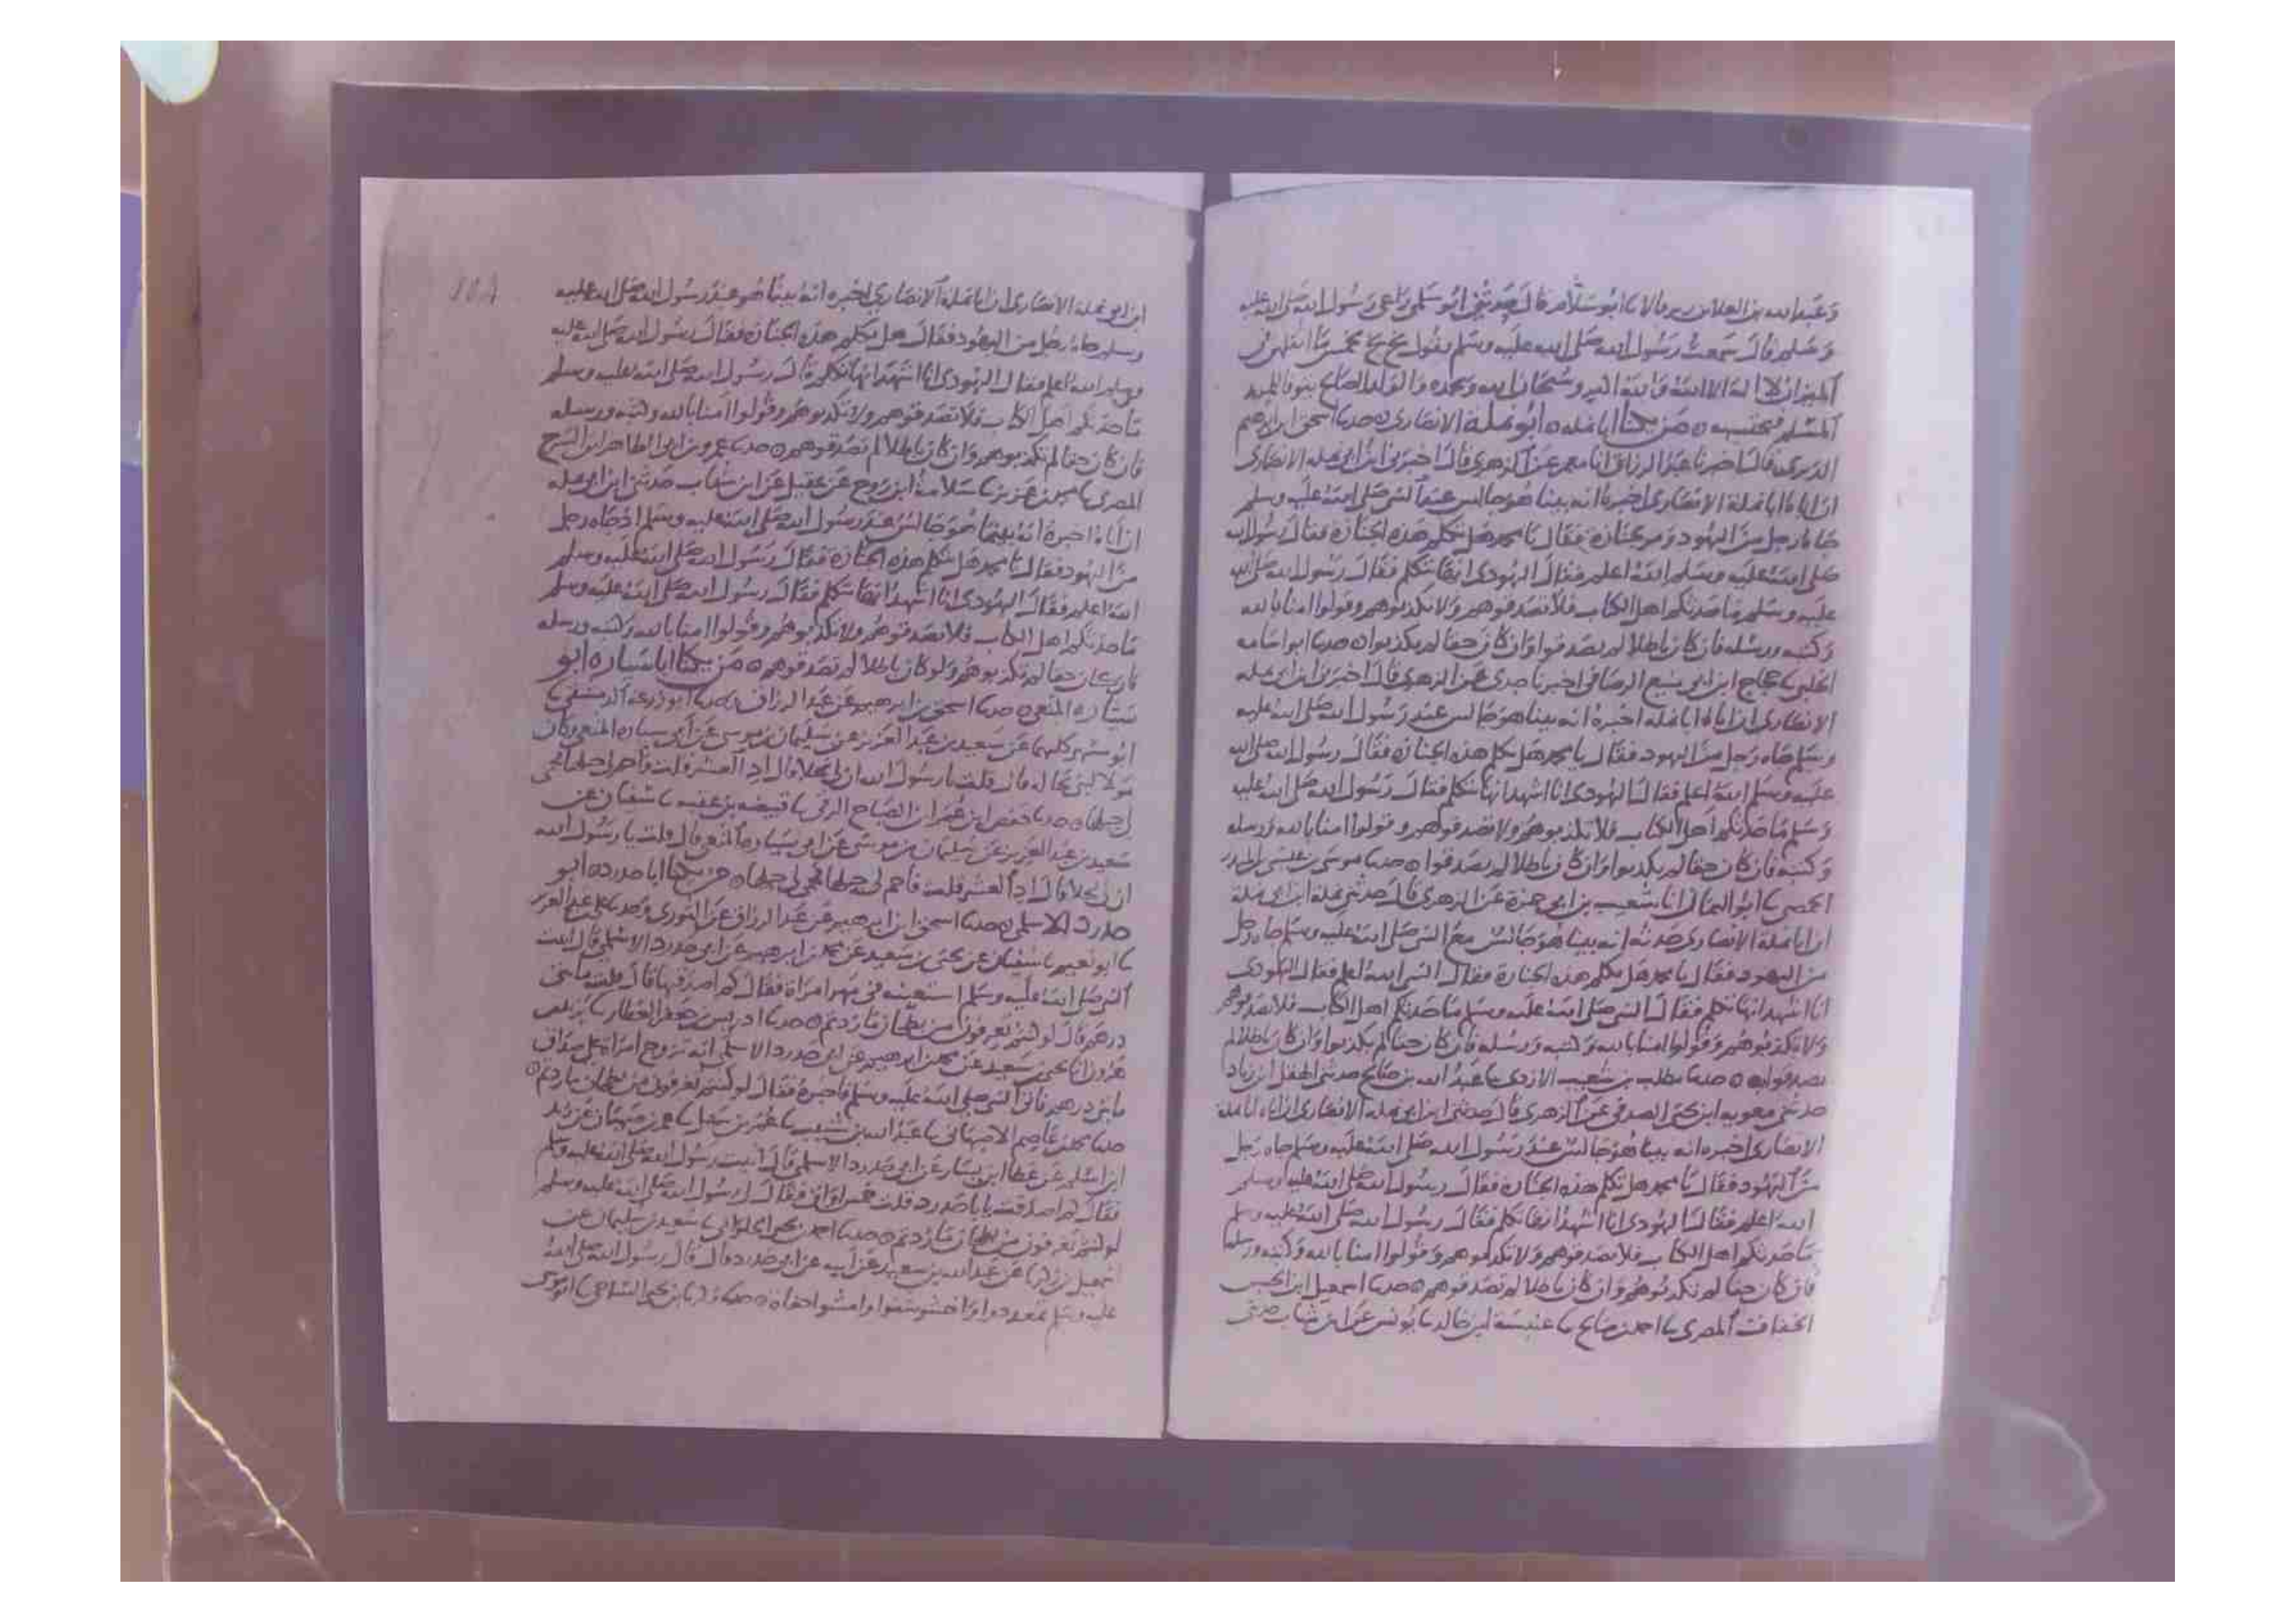 وعبد الله بن العلاء بن زبر قالا نا ابو سلام قال حدثني ابو سلمى راعي رسول الله صلى الله عليه
وسلم قال سمعت رسول الله صلى الله عليه وسلم يقول بخ بخ بخمس ما اثقلهن في
الميزان لا اله الا الله والله اكبر وسبحان الله وبحمده والولد الصالح يتوفا للمرء
المسلم فيحتسبه ه من يكنا ابا نمله ه ابو نملة الانصاري ه حدثنا اسحق بن ابرهيم
الدبري قال اخبرنا عبد الرزاق انا معمر عن الزهري قال اخبرني ابن ابي نملة الانصاري
ان اباه ابا نملة الانصاري اخبره انه بينا هو جالس عند النبي صلى الله عليه وسلم
جاه رجل من اليهود ومر بجنازة فقال يا محمد هل تكلم هذه الجنازة فقال رسول الله
صلى الله عليه وسلم الله اعلم فقال اليهودي انها تتكلم فقال رسول الله صلى الله
عليه وسلم ما حدثكم اهل الكتاب فلا تصدقوهم ولا تكذبوهم وقولوا امنا بالله
وكتبه ورسله فان كان باطلا لم يصدقوا وان كان حقا لم يكذبوا ه حدثنا ابو اسامه
الحلبي نا حجاج ابن ابي منيع الرصافي اخبرنا جدي عن الزهري قال اخبرني ابن ابي نمله
الانصاري ان اباه ابا نمله اخبره انه بينا هو جالس عند رسول الله صلى الله عليه
وسلم جاه رجل من اليهود فقال يا محمد هل تكلم هذه الجنازة فقال رسول الله صلى الله
عليه وسلم الله اعلم فقال اليهودي انا اشهد انها تتكلم فقال رسول الله صلى الله عليه
وسلم ما حدثكم اهل الكتاب فلا تكذبوهم ولا تصدقوهم وقولوا امنا بالله ورسله
وكتبه فان كان حقا لم يكذبوا وان كان باطلا لم يصدقوا ه حدثنا موسى بن عيسى بن المنذر
الحمصي نا ابو اليمان انا شعيب بن ابي حمزة عن الزهري قال حدثني نملة ابن ابي نملة
ان ابا نملة الانصاري حدثه انه بينا هو جالس مع النبي صلى الله عليه وسلم جاه رجل
من اليهود فقال يا محمد هل تكلم هذه الجنازة فقال النبي الله اعلم فقال اليهودي
انا اشهد انها تتكلم فقال النبي صلى الله عليه وسلم ما حدثكم اهل الكتاب فلا تصدقوهم
ولا تكذبوهم وقولوا امنا بالله وكتبه ورسله فان كان حقا لم يكذبوا وان كان باطلا لم
تصدقوا به ه حدثنا مطلب بن شعيب الازدي نا عبد الله بن صالح حدثني الهقل ابن زياد
حدثني معوية ابن يحيى الصدفي عن الزهري قال حدثني ابن ابي نملة الانصاري ان اباه ابا نملة
الانصاري اخبره انه بينا هو جالس عند رسول الله صلى الله عليه وسلم جاه رجل
من اليهود فقال يا محمد هل تكلم هذه الجنازة فقال رسول الله صلى الله عليه وسلم
الله اعلم فقال اليهودي انا اشهد انها تكلم فقال رسول الله صلى الله عليه وسلم
ما حدثكم اهل الكتاب فلا تصدقوهم ولا تكذبوهم وقولوا امنا بالله وكتبه ورسله
فان كان حقا لم تكذبوهم وان كان باطلا لم تصدقوهم ه حدثنا اسمعيل ابن الحسن
الخفاف المصري نا احمد بن صالح نا عنبسة ابن خالد نا يونس عن ابن شهاب حدثني
ابن ابو نملة الانصاري ان ابا نملة الانصاري اخبره انه بينا هو عند رسول الله صلى الله عليه
وسلم جاه رجل من اليهود فقال هل تكلم هذه الجنازة فقال رسول الله صلى الله عليه
وسلم الله اعلم فقال اليهودي انا اشهد انها تتكلم قال رسول الله صلى الله عليه وسلم
ما حدثكم اهل الكتاب فلا تصدقوهم ولا تكذبوهم وقولوا امنا بالله وكتبه ورسله
فان كان حقا لم تكذبوهم وان كان باطلا لم تصدقوهم ه حدثنا عمرو بن ابي الطاهر ابن السرح
المصري نا محمد بن عزيز نا سلامة ابن روح عن عقيل عن ابن شهاب حدثني ابن ابي نمله
ان اباه اخبره انه بينما هو جالس عند رسول الله صلى الله عليه وسلم اذ جاه رجل
من اليهود فقال يا محمد هل تكلم هذه الجنازة فقال رسول الله صلى الله عليه وسلم
الله اعلم فقال اليهودي انا اشهد انها تتكلم فقال رسول الله صلى الله عليه وسلم
ما حدثكم اهل الكتاب فلا تصدقوهم ولا تكذبوهم وقولوا امنا بالله وكتبه ورسله
فان كان حقا لم تكذبوهم ولو كان باطلا لم تصدقوهم ه من يكنا ابا سياره ابو
سيارة المتعي ه حدثنا اسحق بن ابرهيم عن عبد الرزاق حدثنا ابو زرعه الدمشقي نا
ابو مسهر كلهما عن سعيد بن عبد العزيز عن سليمان بن موسى عن ابي سياره المتعي وكان
مولا لبني بجاله قال قلت يا رسول الله ان لي نخلا قال اد العشر قلت فاحم لي جبلها فحمى
لي جبلها ه حدثنا حفص ابن عمر ابن الصباح الرقي نا قبيصه بن عقبه نا سفيان عن
سعيد بن عبد العزيز عن سليمان بن موسى عن ابي سيارة المتعي قال قلت يا رسول الله
ان لي نخلا قال اد العشر قلت فاحم لي جبلها فحمي لي جبلها ه من يكنا ابا حدرد ه ابو
حدرد الاسلمي ه حدثنا اسحق ابن ابرهيم عن عبد الرزاق عن الثوري وحدثنا علي بن عبد العزيز
نا ابو نعيم نا سفيان عن يحيى بن سعيد عن محمد بن ابرهيم عن ابي حدرد الاسلمي قال اتيت
النبي صلى الله عليه وسلم استعينه في مهر امراة فقال كم اصدقتها قال قلت مايتي
درهم قال لو كنتم تغرفون من بطحان ما زدتم ه حدثنا ادريس بن جعفر العطار نا يزيد بن
هرون انا يحيى بن سعيد عن محمد بن ابرهيم عن ابي حدرد الاسلمي انه تزوج امراة على صداق
مايتي درهم فاتى النبي صلى الله عليه وسلم فاخبره فقال لو كنتم تغرفون من بطحان ما زدتم ه
حدثنا محمد بن عاصم الاصبهاني نا عبد الله بن شبيب نا
ابن اسلم عن عطا ابن يسار عن ابي حدرد الاسلمي قال اتيت رسول الله صلى الله عليه وسلم
فقال كم اصدقت يا ابا حدرد قلت خمس اواق فقال لي رسول الله صلى الله عليه وسلم
لو كنتم تغرفون من بطحان ما زدتم ه حدثنا احمد بن يحيى الحلواني نا سعيد بن سليمان عن
اسمعيل بن زكريا عن عبد الله بن سعيد عن ابيه عن ابي حدرد قال قال رسول الله صلى الله
عليه وسلم تمعددوا واخشوشنوا وامشوا حفاة ه حدثنا زكريا بن يحيى الساجي نا ابو موسى